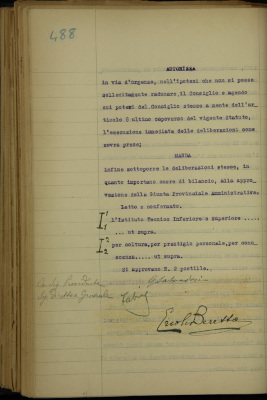 488
AUTORIZZA
in via d'urgenza, nell'ipotesi che non si possa
sollecitamente radunare, il Consiglio e agendo
coi poteri del Consiglio stesso a mente dell'ar-
ticolo 8 ultimo capoverso del vigente Statuto,
l'esecuzione immediata delle deliberazioni come
sovra prese;
MANDA
infine sottoporre le deliberazioni stesse, in
quanto importano onere di bilancio, alla appro-
vazione della Giunta Provinciale Amministrativa.
Letto e confermato.
I 1/1 l'Istituto Tecnico Inferiore e superiore .....
... ut supra.
I 2/2 per coltura, per prestigio personale, per cono-
scenza..... ut supra.
Si approvano N. 2 postille.
Il Presidente
Il Direttore Generale